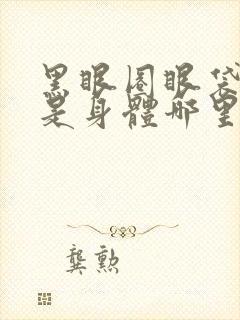 黑眼圈眼袋
是身體哪里
龔勲